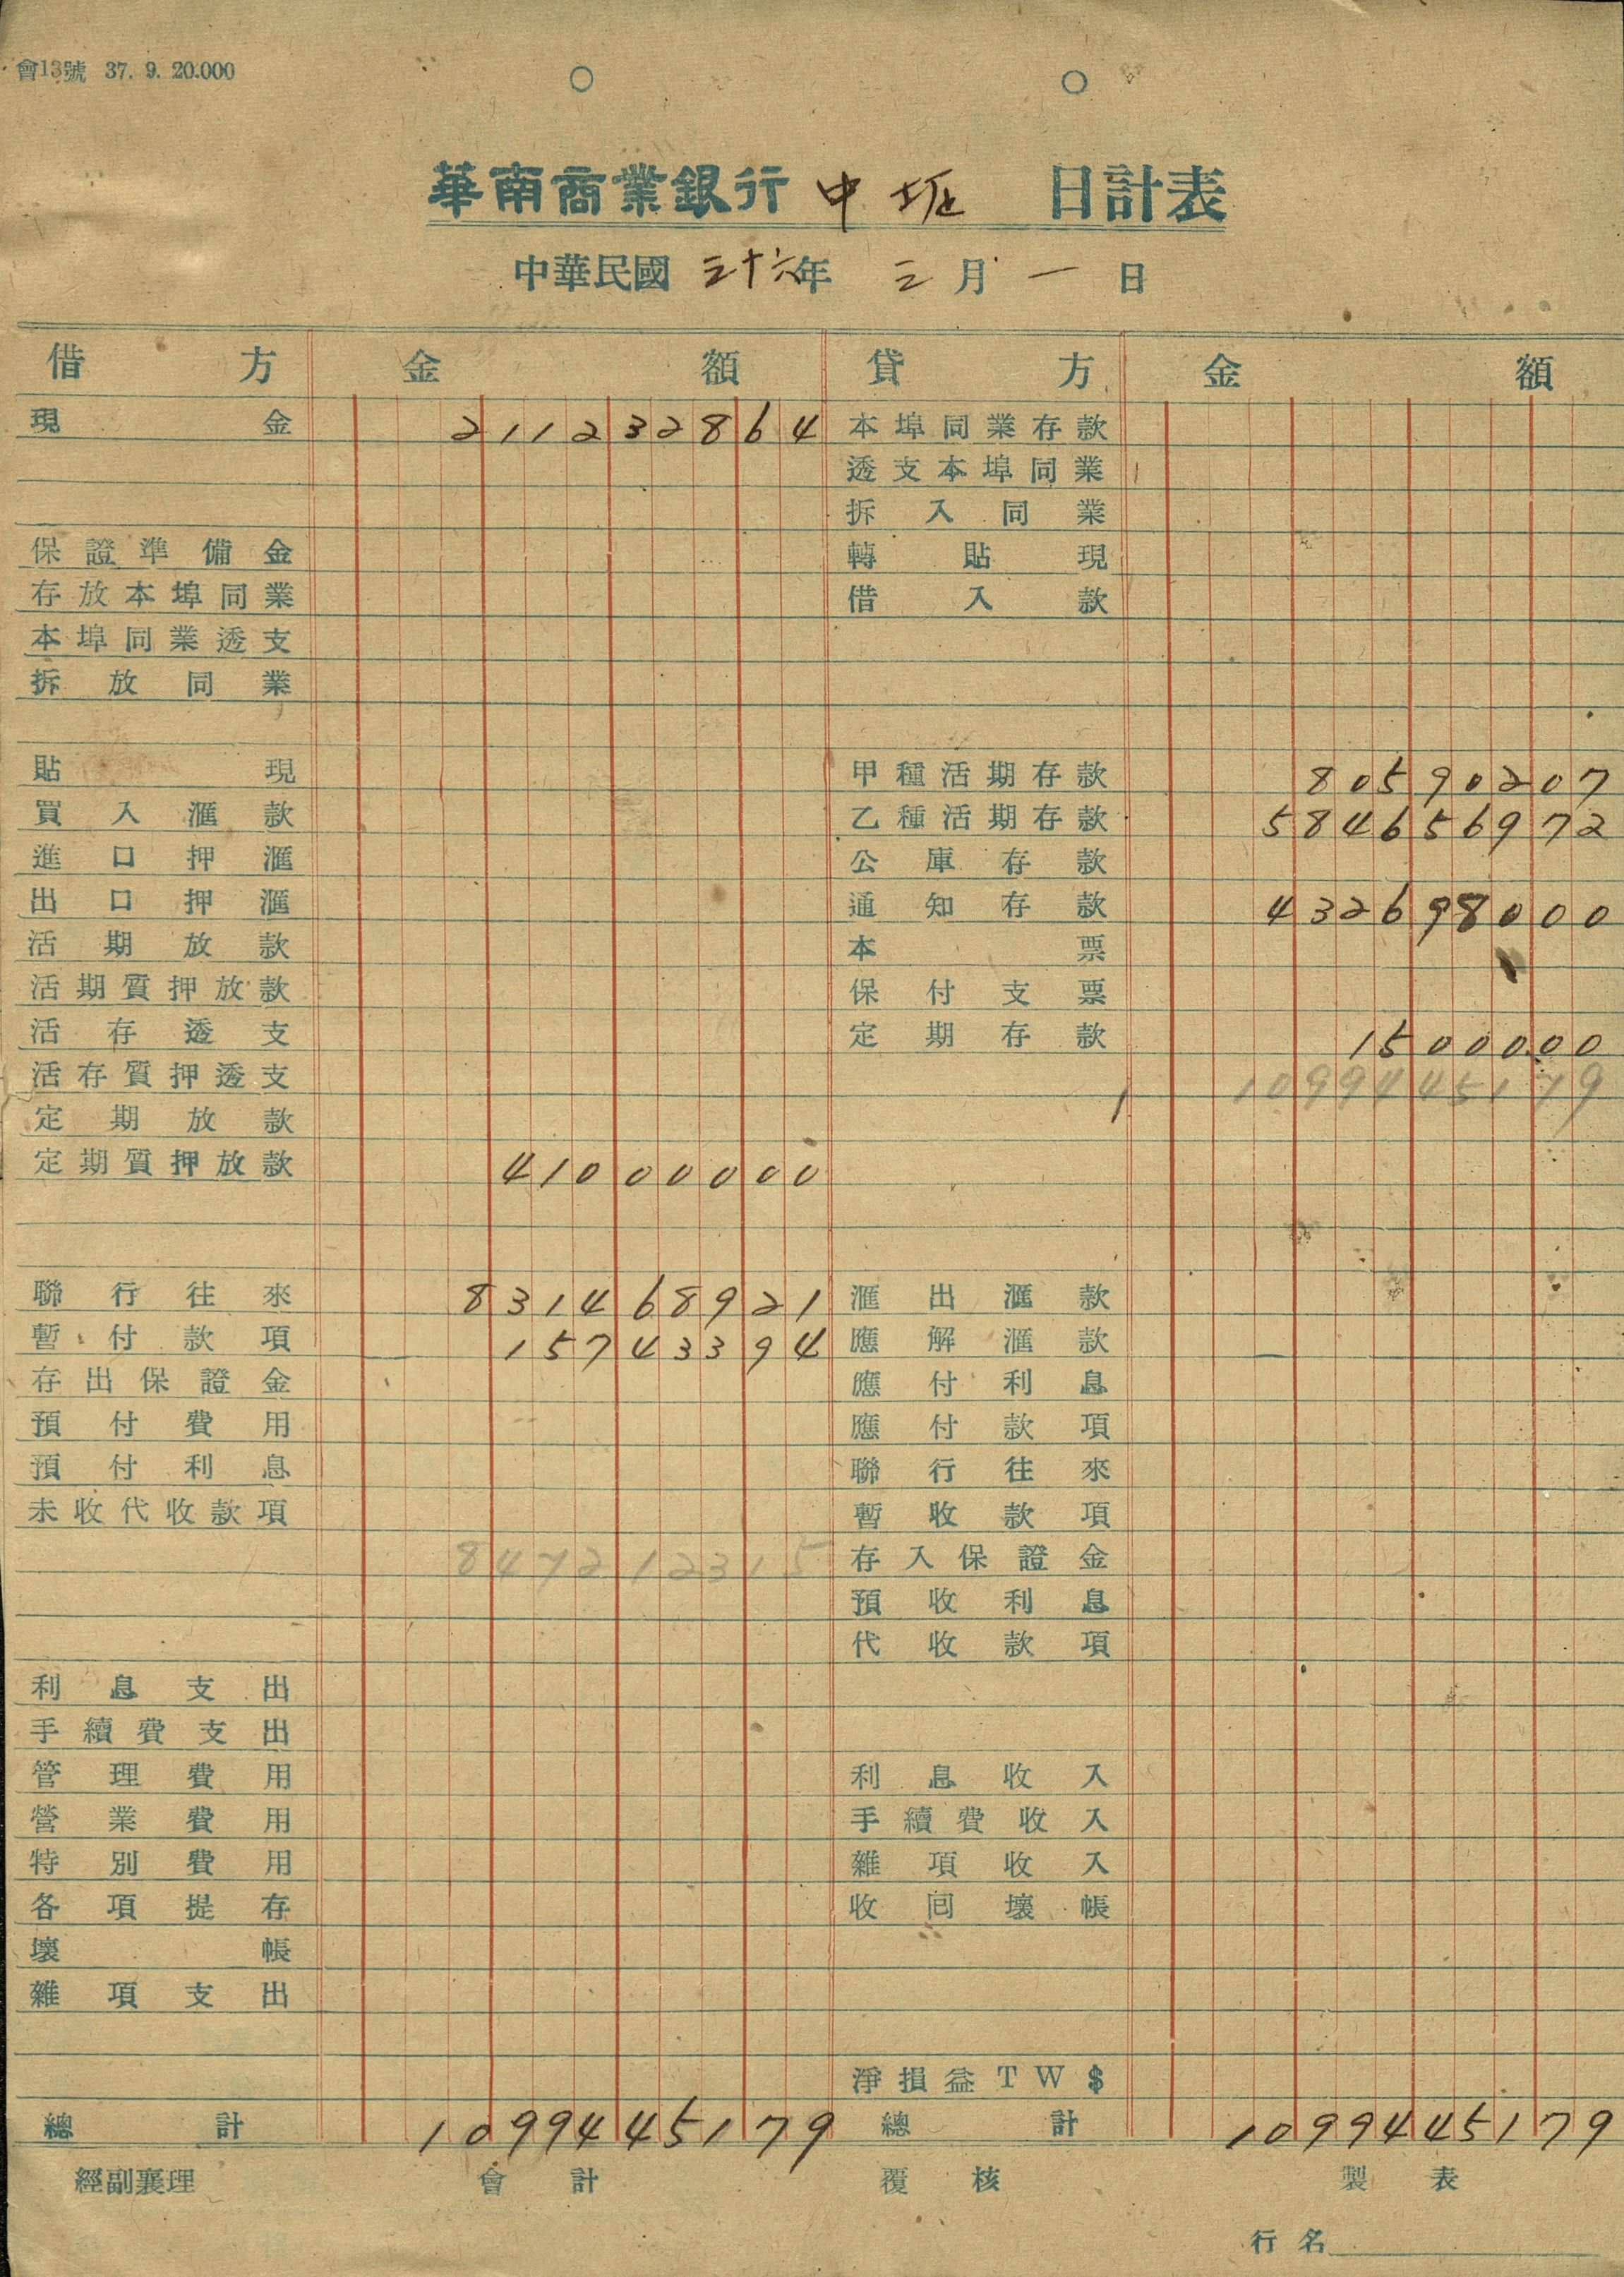 會13號 37. 9. 20.000
華南商業銀行 中坜 日計表
中華民國 三十六年 三月 一日
借方 金額 貸方 金額
現金 211232864 本埠同業存款
透支本埠同業
拆入同業
保證準備金 轉貼現
存放本埠同業 借入款
本埠同業透支
拆放同業
貼現 甲種活期存款 80590207
買入滙款 乙種活期存款 584656972
進口押滙 公庫存款
出口押滙 通知存款 432698000
活期放款 本票
活期質押放款 保付支票
活存透支 定期存款 1500000
活存質押透支 1099445179
定期放款
定期質押放款 41000000
聯行往來 831468921 滙出滙款
暫付款項 15743394 應解滙款
存出保證金 應付利息
預付費用 應付款項
預付利息 聯行往來
未收代收款項 暫收款項
847212315 存入保證金
預收利息
代收款項
利息支出
手續費支出
管理費用 利息收入
營業費用 手續費收入
特別費用 雜項收入
各項提存 收囘壞帳
壞帳
雜項支出
淨損益TW$
總計 1099445179 總計 1099445179
經副襄理 會計 覆核 製表
行名